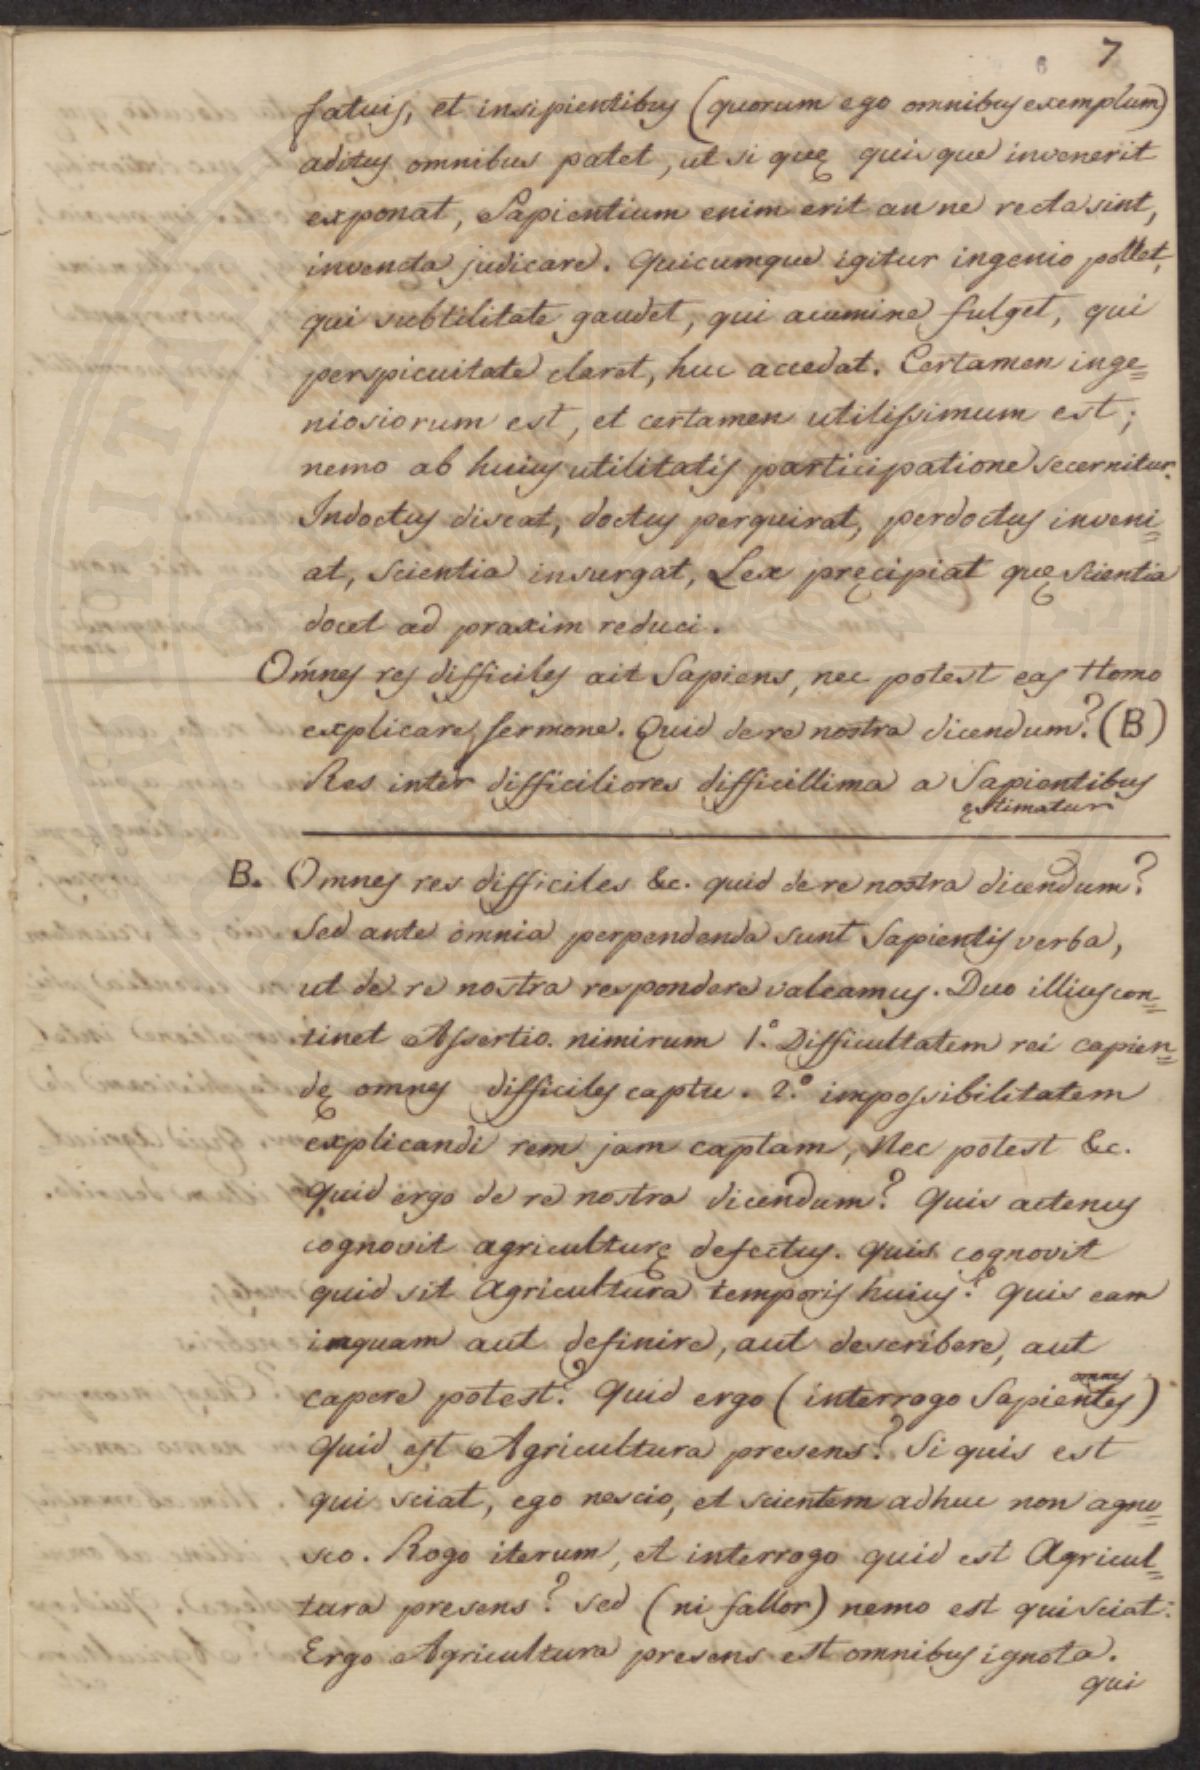 6 7
fatuis, et insipientibus (quorum ego omnibus exemplum)
aditus omnibus patet, ut si quę quisque invenerit
exponat, Sapientium enim erit an ne recta sint,
inventa judicare. Quicumque igitur ingenio pollet,
qui subtilitate gaudet, qui acumine fulget, qui
perspicuitate claret, huc accedat. Certamen inge=
niosiorum est, et certamen utilissimum est;
nemo ab huius utilitatis participatione secernitur.
Indoctus discat, doctus perquirat, perdoctus inveni=
at, scientia insurgat, Lex pręcipiat quę scientia
docet ad praxim reduci.
Omnes res difficiles ait Sapiens, nec potest eas Homo
explicare sermone. Quid de re nostra dicendum? (B)
Res inter difficiliores difficillima a Sapientibus
ęstimatur
B. Omnes res difficiles &c. quid de re nostra dicendum?
Sed ante omnia perpendenda sunt Sapientis verba,
ut de re nostra respondere valeamus. Duo illius con=
tinet Assertio. nimirum 1.° Difficultatem rei capien=
dę omnes difficiles captu. 2.° impossibilitatem
explicandi rem jam captam, Nec potest &c.
Quid ergo de re nostra dicendum? Quis actenus
cognovit agriculturę defectus. Quis cognovit
quid sit Agricultura temporis huius? Quis eam
inquam aut definire, aut describere, aut
capere potest? Quid ergo (interrogo Sapientes omnes)
Quid est Agricultura presens? Si quis est
qui sciat, ego nescio, et scientem adhuc non agno=
sco. Rogo iterum, et interrogo quid est Agricul=
tura presens? sed (ni fallor) nemo est qui sciat:
Ergo Agricultura presens est omnibus ignota.
qui